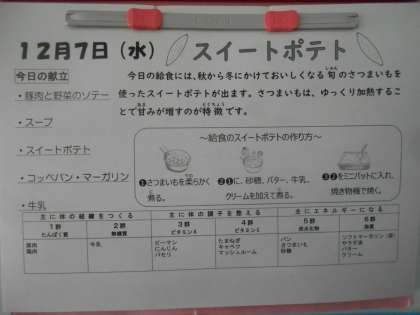 12月7日（水） スイートポテト
今日の献立
・豚肉と野菜のソテー
・スープ
・スイートポテト
・コッペパン・マーガリン
・牛乳
今日の給食には、秋から冬にかけておいしくなる旬のさつまいも
を使ったスイートポテトが出ます。さつまいもは、ゆっくり加熱するこ
とで甘みが増すのが特徴です。
～給食のスイートポテトの作り方～
❶さつまいもを柔らかく
蒸る。
❷❶に、砂糖、バター、牛乳、
クリームを加えて煮る。
❸❷をミニバットに入れ、
焼き物機で焼く。
主に体の組織をつくる 主に体の調子を整える 主にエネルギーになる
1群 2群 3群 4群 5群 6群
たんぱく質 無機質 ビタミンA ビタミンC 炭水化物 脂質
豚肉
鶏肉
牛乳
ピーマン
にんじん
パセリ
たまねぎ
キャベツ
マッシュルーム
パン
さつまいも
砂糖
ソフトマーガリン
サラダ油
バター
クリーム